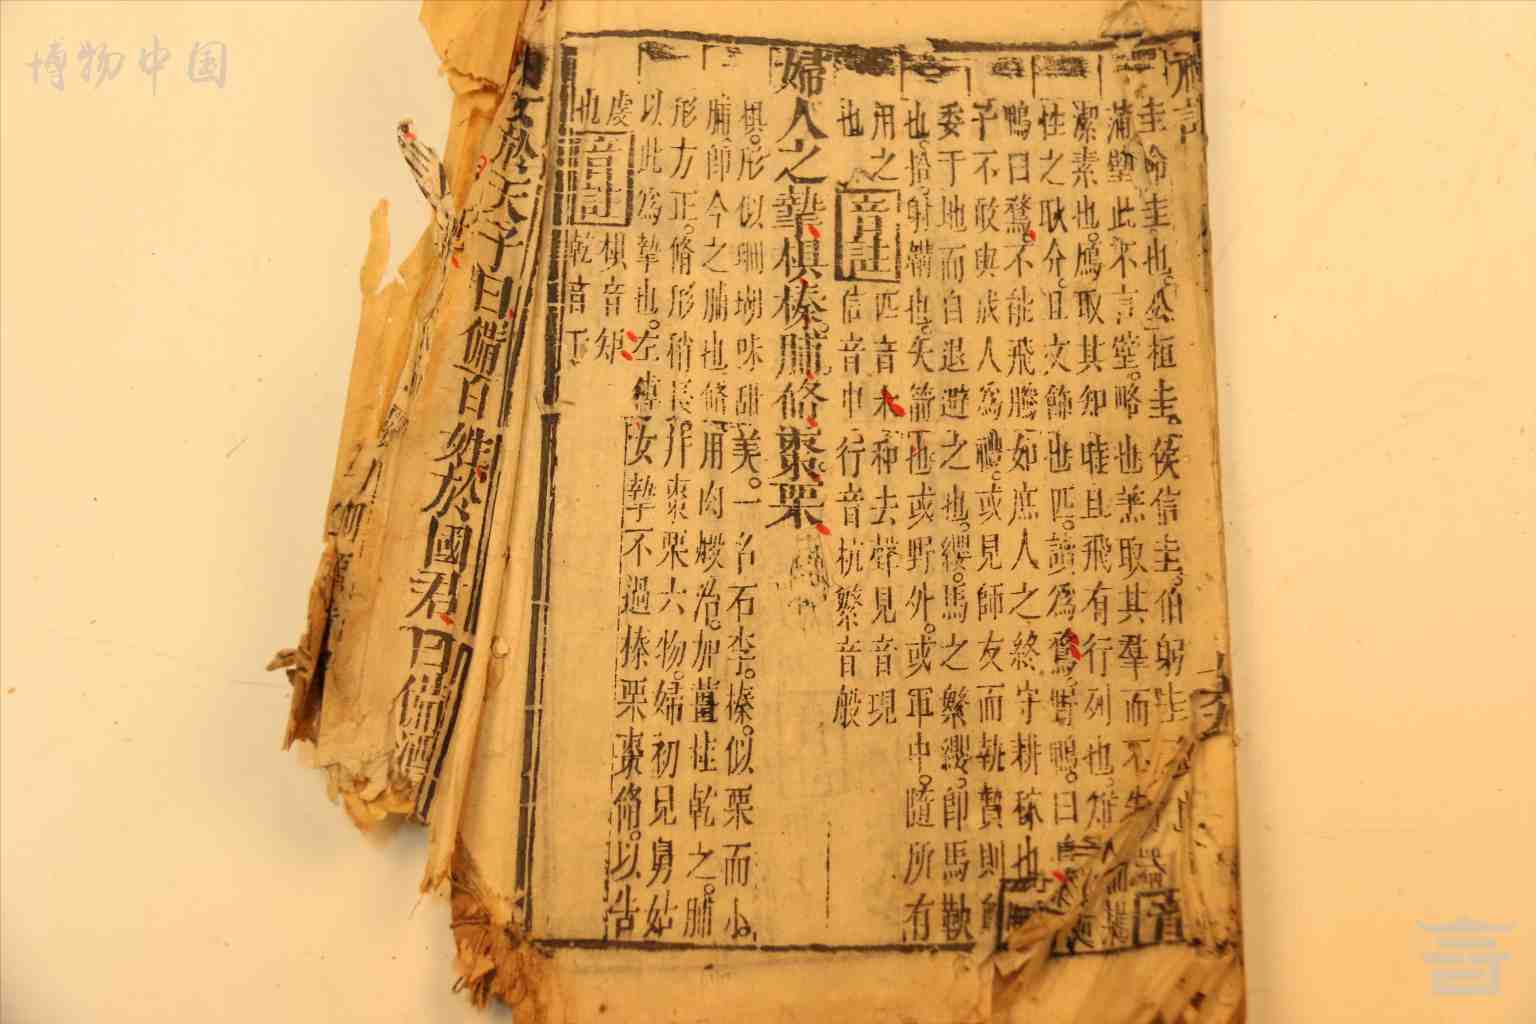 博物中国
圭命圭也。公桓圭。侯信圭。伯躬圭
蒲璧此不言璧。略也羔取其羣而不失
潔素也。鴈取其知唯且飛有行列也。
性之耿介。且文飾也匹。讀爲鶩。野鴨。曰
鴨曰鶩。不能飛騰如庶人之終守耕稼也
子不敢與成人爲禮。或見師友而執贄則
委于地而自退避之也。纓。馬之繁纓。即馬鞅
也。拾。射韝也。矢箭也或野外。或軍中。隨所有
用之 音註 匹音木 種去聲見音現
也 信音申 行音杭繁音般
婦人之摯椇榛。脯脩。棗。栗。
椇。形似珊瑚味甜美。一名石李。榛。似栗而小。
脯即今之脯也脩用肉煅治。加薑桂乾之。脯
形方正。脩形稍長。并棗栗六物。婦初見舅姑
以此爲摯也。左傳女摯不過榛栗棗脩。以告
虔也 音註 椇音矩
乾音干
女於天子曰備百姓於國君曰備酒